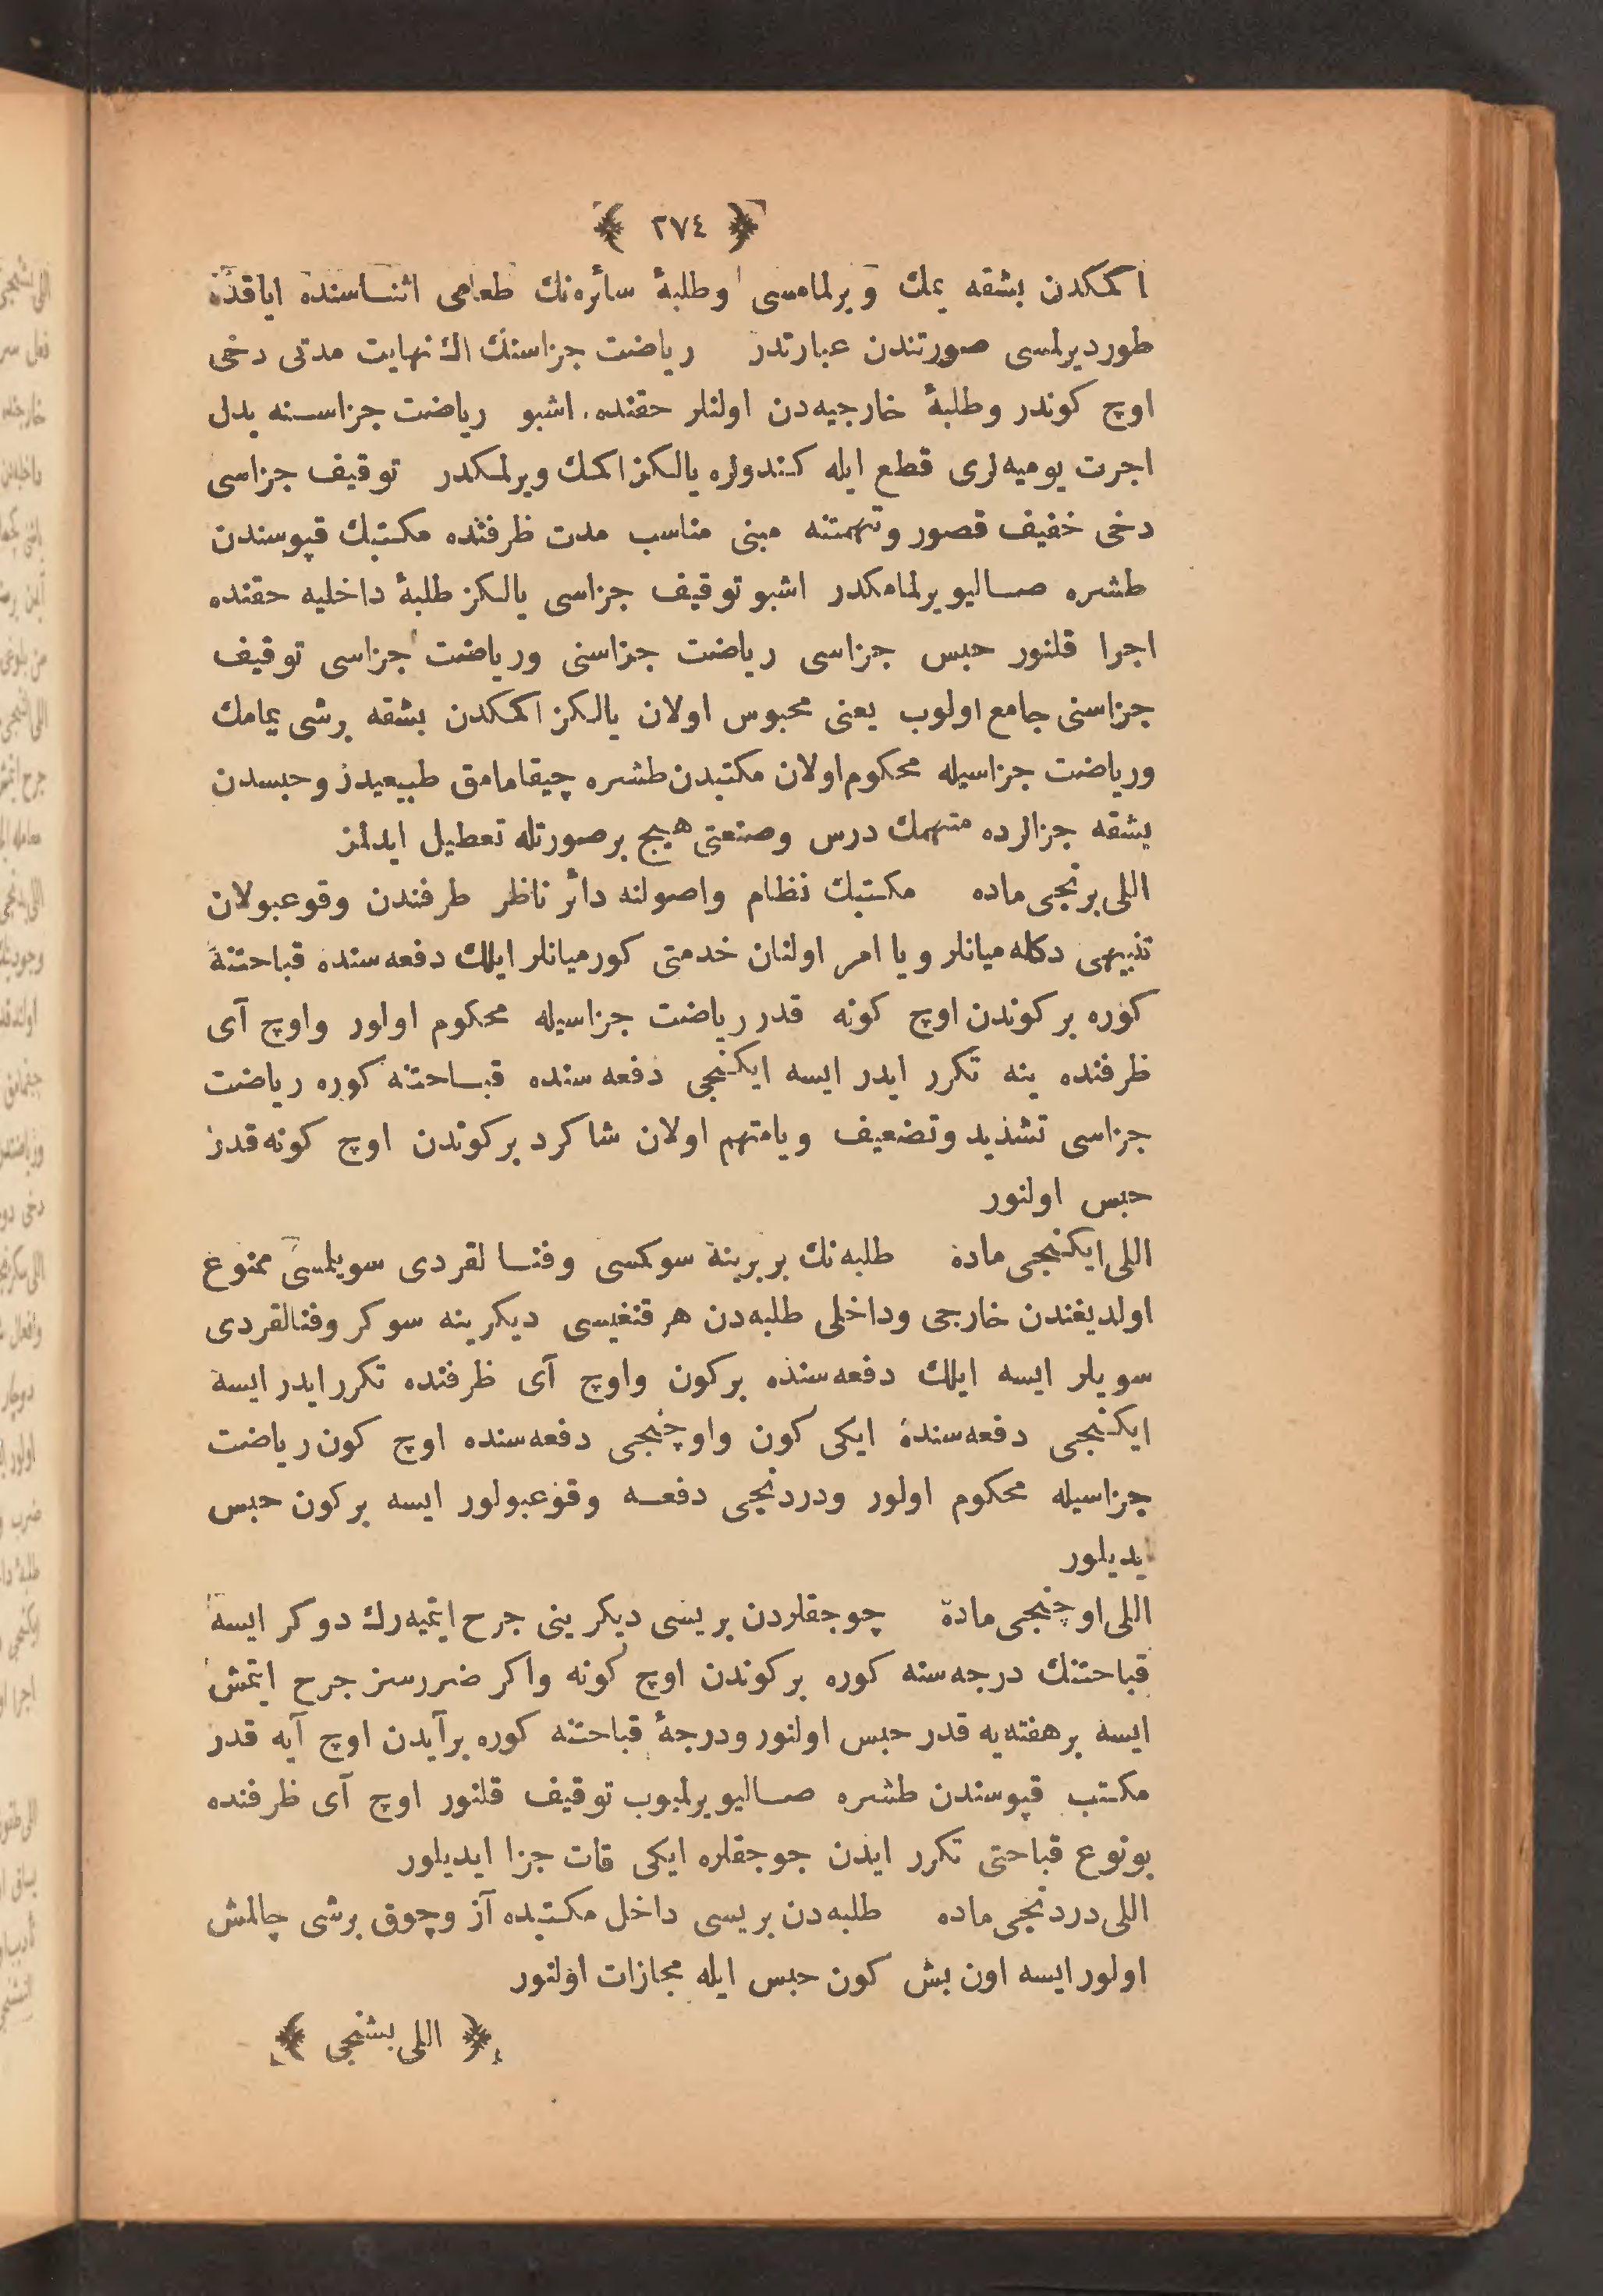 ﴿ ٢٧٤ ﴾
اكمكدن بشقه يمك ويرلمامسى وطلبۀ سائره‌نك طعامى اثناسنده اياقده
طورديرلمسى صورتندن عبارتدر رياضت جزاسنك اك نهايت مدتى دخى
اوچ كوندر وطلبۀ خارجيه‌دن اولنلر حقنده اشبو رياضت جزاسنه بدل
اجرت يوميه‌لرى قطع ايله كندولره يالكز اكمك ويرلمكدر توقيف جزاسى
دخى خفيف قصور وتهمتنه مبنى مناسب مدت ظرفنده مكتبك قپوسندن
طشره صاليويرلمامكدر اشبو توقيف جزاسى يالكز طلبۀ داخليه حقنده
اجرا قلنور حبس جزاسى رياضت جزاسنى ورياضت جزاسى توقيف
جزاسنى جامع اولوب يعنى محبوس اولان يالكز اكمكدن بشقه برشى يمامك
ورياضت جزاسيله محكوم اولان مكتبدن طشره چيقامامق طبيعيدر وحبسدن
بشقه جزالرده متهمك درس وصنعتى هيچ بر صورتله تعطيل ايدلمز
اللى برنجى ماده مكتبك نظام واصولنه دائر ناظر طرفندن وقوعبولان
تنبيهى دكله‌ميانلر ويا امر اولنان خدمتى كورميانلر ايلك دفعه‌سنده قباحتنه
كوره بر كوندن اوچ كونه قدر رياضت جزاسيله محكوم اولور واوچ آى
ظرفنده ينه تكرر ايدر ايسه ايكنجى دفعه‌سنده قباحتنه كوره رياضت
جزاسى تشديد وتضعيف ويا متهم اولان شاكرد بر كوندن اوچ كونه قدر
حبس اولنور
اللى ايكنجى ماده طلبه‌نك بربرينه سوكمسى وفنا لقردى سويلمسى ممنوع
اولديغندن خارجى وداخلى طلبه‌دن هر قنغيسى ديكرينه سوكر وفنا لقردى
سويلر ايسه ايلك دفعه‌سنده بر كون واوچ آى ظرفنده تكرر ايدر ايسه
ايكنجى دفعه‌سنده ايكى كون واوچنجى دفعه‌سنده اوچ كون رياضت
جزاسيله محكوم اولور ودردنجى دفعه وقوعبولور ايسه بر كون حبس
ايديلور
اللى اوچنجى ماده چوجقلردن بريسى ديكرينى جرح ايتميه‌رك دوكر ايسه
قباحتنك درجه‌سنه كوره بر كوندن اوچ كونه واكر ضررسز جرح ايتمش
ايسه بر هفته‌يه قدر حبس اولنور ودرجۀ قباحتنه كوره بر آيدن اوچ آيه قدر
مكتب قپوسندن طشره صاليويرلميوب توقيف قلنور اوچ آى ظرفنده
بونوع قباحتى تكرر ايدن جوجقلره ايكى قات جزا ايديلور
اللى دردنجى ماده طلبه‌دن بريسى داخل مكتبده آز وچوق برشى چالمش
اولور ايسه اون بش كون حبس ايله مجازات اولنور
﴿ اللى بشنجى ﴾